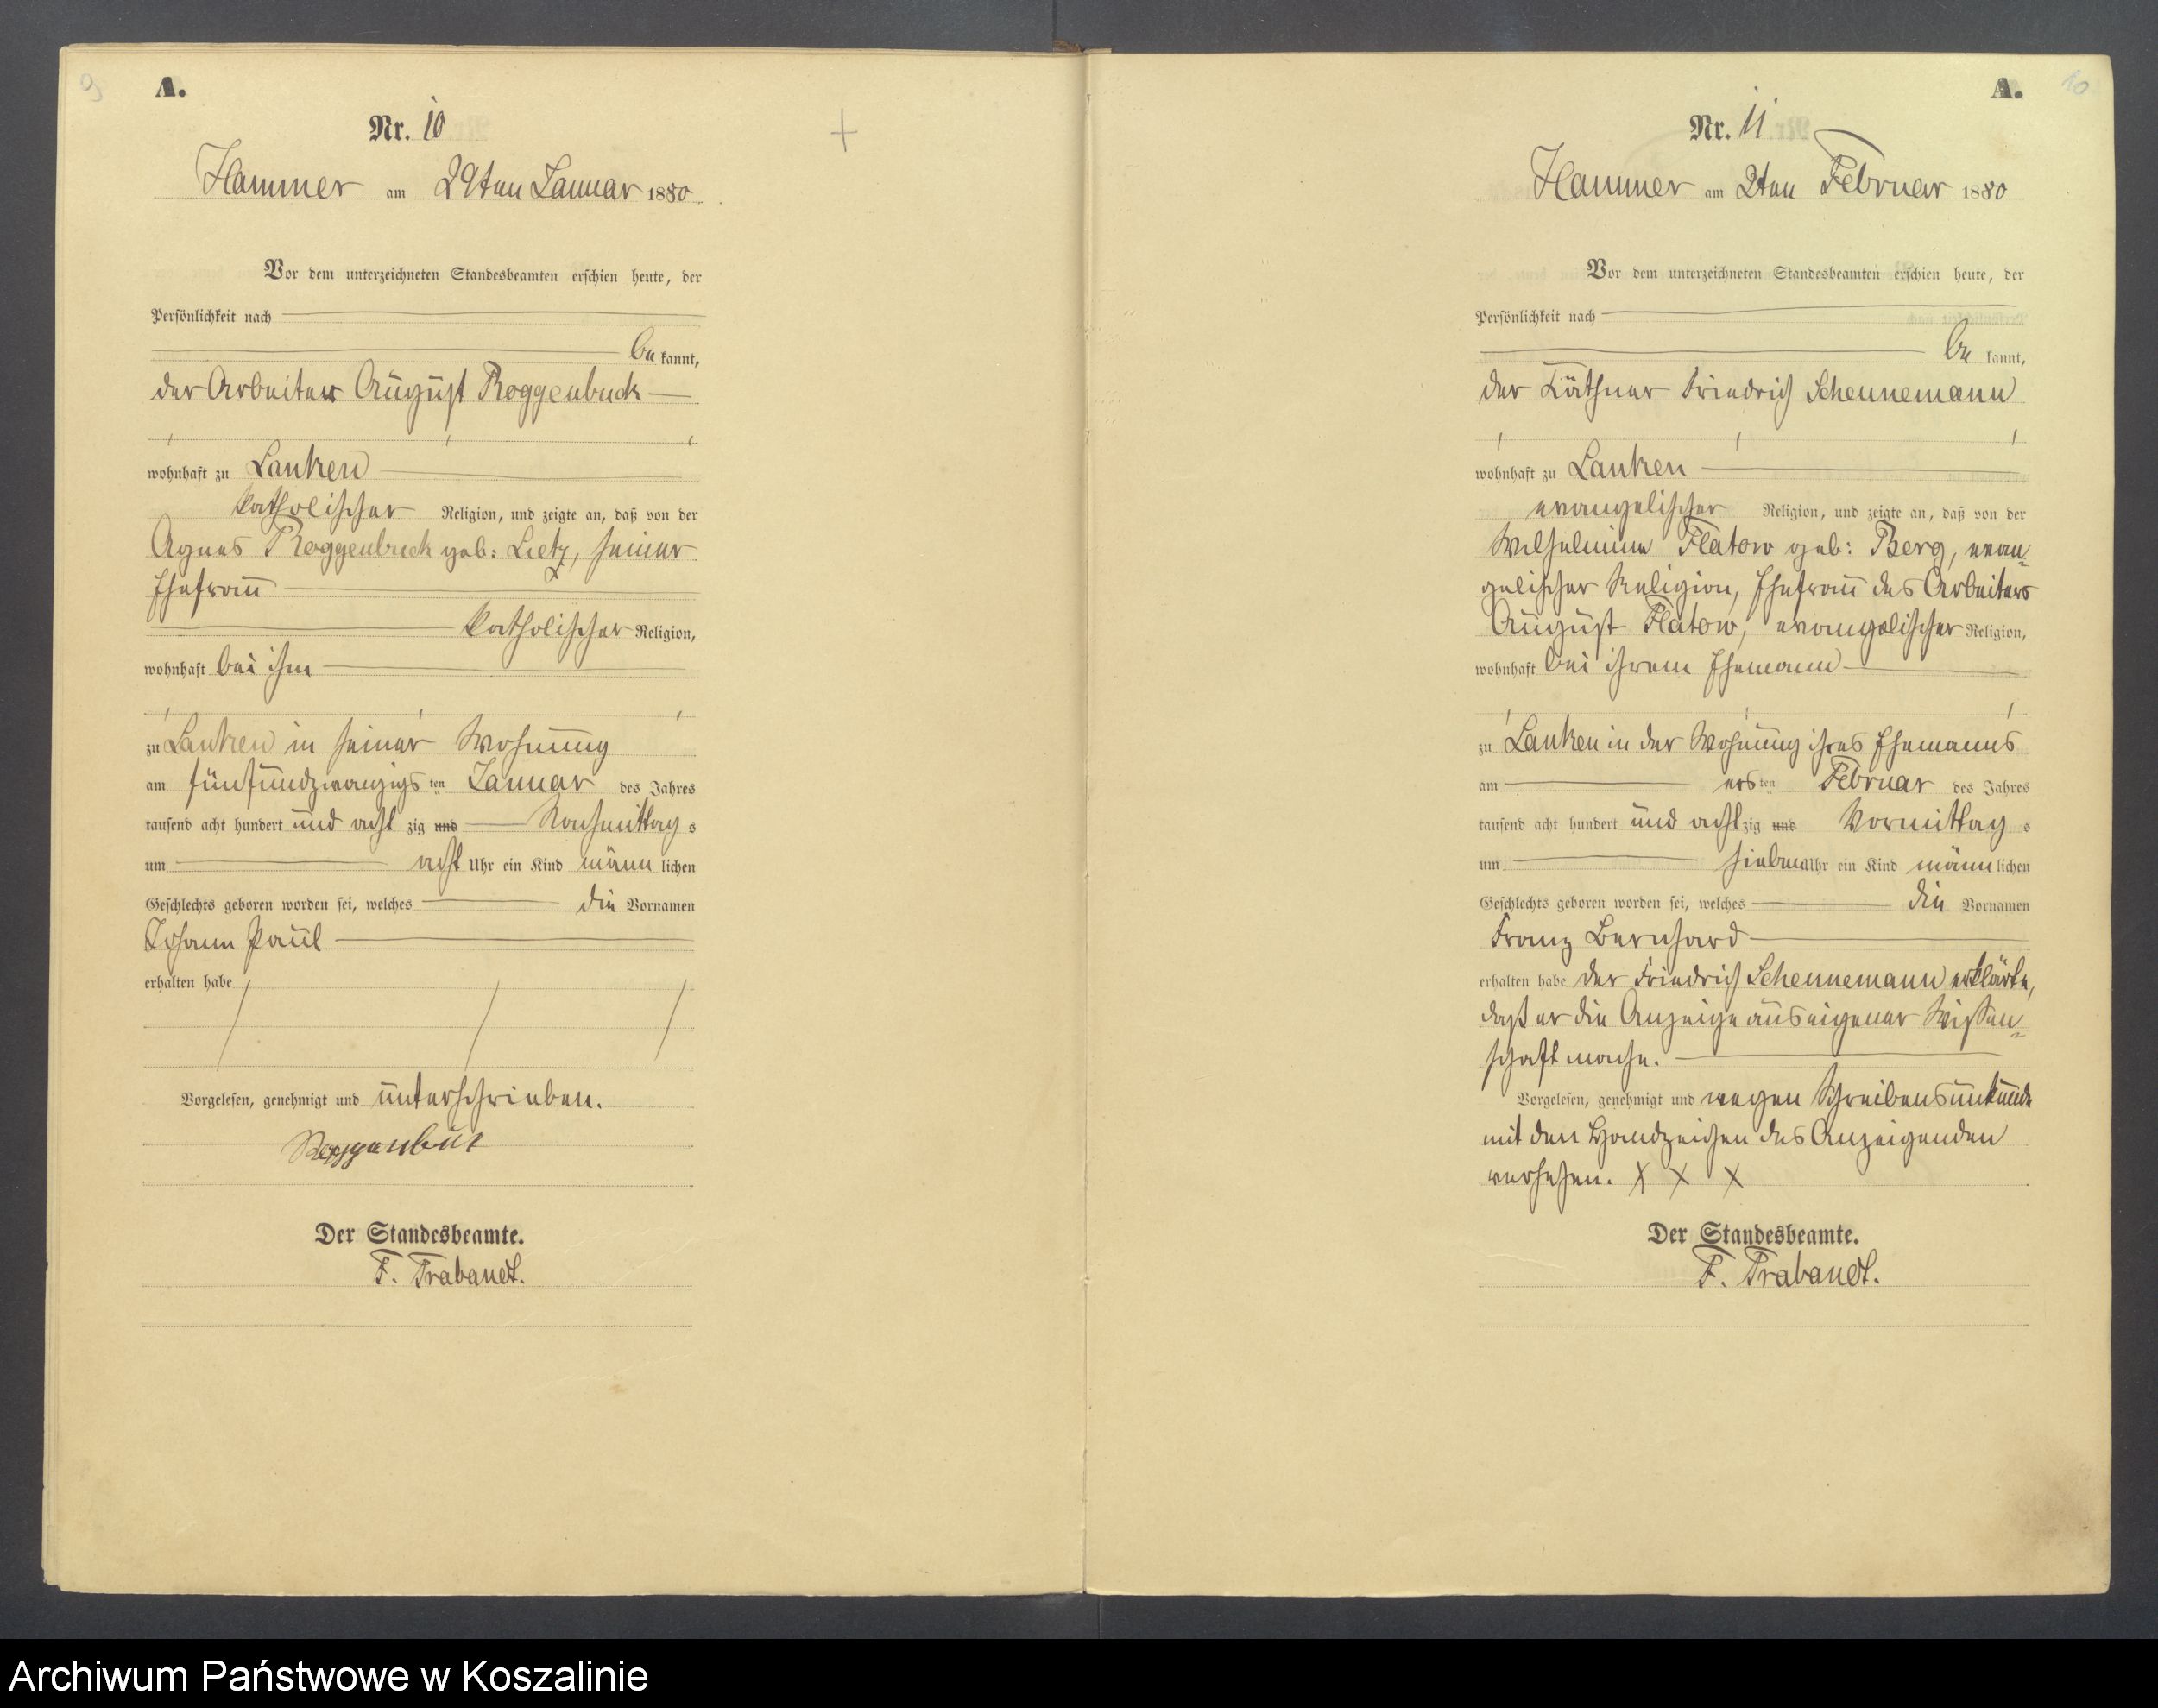 9
A.
Nr. 10
Hammer am 29ten Januar 1880
Vor dem unterzeichneten Standesbeamten erschien heute, der
Persönlichkeit nach
be kannt,
der Arbeiter August Roggenbuck
wohnhaft zu Lanken
katholischer Religion, und zeigte an, daß von der
Agnes Roggenbuck geb: Lietz, seiner
Ehefrau
katholischer Religion,
wohnhaft bei ihm
zu Lanken in seiner Wohnung
am fünfundzwanzigs ten Januar des Jahres
tausend acht hundert und acht zig und Nachmittag s
um acht Uhr ein Kind männ lichen
Geschlechts geboren worden sei, welches die Vornamen
Johann Paul
erhalten habe
Vorgelesen, genehmigt und unterschrieben.
Der Standesbeamte.
F. Trabandt.
A. 10
Nr. 11
Hammer am 2ten Februar 1880
Vor dem unterzeichneten Standesbeamten erschien heute, der
Persönlichkeit nach
be kannt,
der Käthner Friedrich Schennemann
wohnhaft zu Lanken
evangelischer Religion, und zeigte an, daß von der
Wilhelmine Flatow geb: Berg, evan-
gelischer Religion, Ehefrau des Arbeiters
August Flatow, evangelischer Religion,
wohnhaft bei ihrem Ehemann
zu Lanken in der Wohnung ihres Ehemanns
am ers ten Februar des Jahres
tausend acht hundert und acht zig und Vormittag s
um sieben Uhr ein Kind männ lichen
Geschlechts geboren worden sei, welches die Vornamen
Franz Bernhard
erhalten habe der Friedrich Schennemann erklärte,
daß er die Anzeige aus eigener Wissen-
schaft mache.
Vorgelesen, genehmigt und wegen Schreibensunkunde
mit den Handzeichen des Anzeigenden
versehen. X X X
Der Standesbeamte.
F. Trabandt.
Archiwum Państwowe w Koszalinie